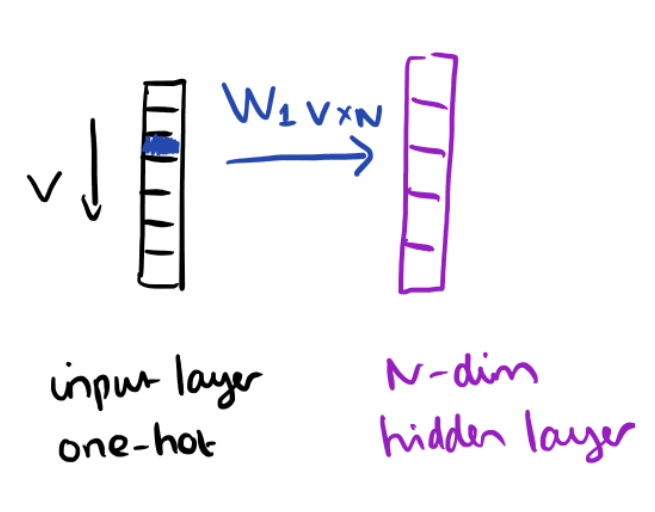 W1 V×N
V
input layer
one-hot
N-dim
hidden layer